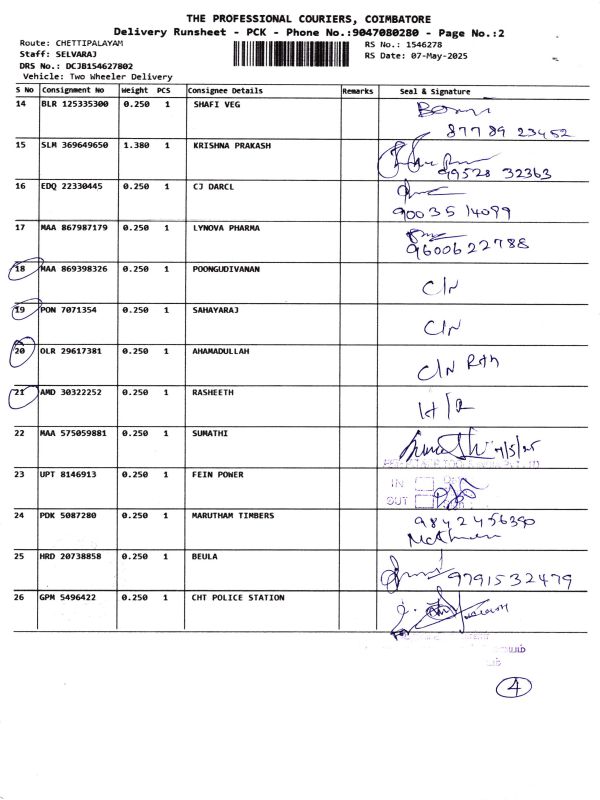 THE PROFESSIONAL COURIERS, COIMBATORE
Delivery Runsheet - PCK - Phone No.:9047080280 - Page No.:2
Route: CHETTIPALAYAM
RS No.: 1546278
Staff: SELVARAJ
RS Date: 07-May-2025
DRS No.: DCJB154627802
Vehicle: Two Wheeler Delivery
S No Consignment No Weight PCS Consignee Details Remarks Seal & Signature
14 BLR 125335300 0.250 1 SHAFI VEG
87789 23452
15 SLM 369649650 1.380 1 KRISHNA PRAKASH
99528 32363
16 EDQ 22330445 0.250 1 CJ DARCL
90035 14099
17 MAA 867987179 0.250 1 LYNOVA PHARMA
9600622788
18 MAA 869398326 0.250 1 POONGUDIVANAN
C/N
19 PON 7071354 0.250 1 SAHAYARAJ
C/N
20 OLR 29617381 0.250 1 AHAMADULLAH
C/N
21 AMD 30322252 0.250 1 RASHEETH
22 MAA 575059881 0.250 1 SUMATHI
7/5/25
23 UPT 8146913 0.250 1 FEIN POWER
IN
OUT
24 PDK 5087280 0.250 1 MARUTHAM TIMBERS
9842456390
25 HRD 20738858 0.250 1 BEULA
9791532479
26 GPM 5496422 0.250 1 CHT POLICE STATION
4